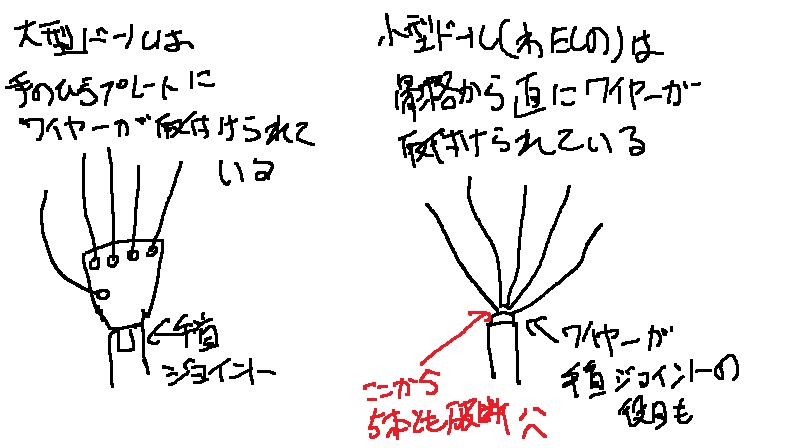 大型ドールは
手のひらプレートに
ワイヤーが取付けられて
いる
小型ドール(わたしの)は
骨格から直にワイヤーが
取付けられている
←手首
ジョイント
ここから
5本とも破断
←ワイヤーが
手首ジョイントの
役目も